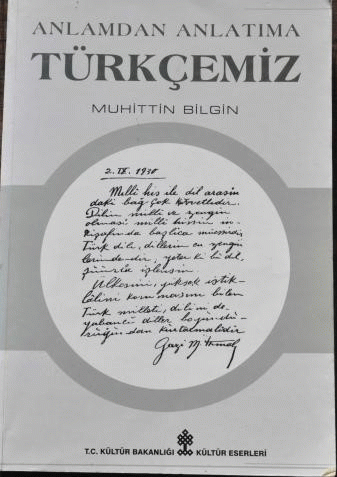 ANLAMDAN ANLATIMA
TÜRKÇEMİZ
MUHİTTİN BİLGİN
2. IX. 1930
Milli his ile dil arasın
daki bağ çok kuvvetlidir.
Dilin milli ve zengin
olması milli hissin in-
kişafında başlıca müessirdir.
Türk dili, dillerin en zengin
lerindendir, yeter ki bu dil,
şuurla işlensin.
Ülkesini, yüksek istik-
lâlini korumasını bilen
Türk milleti, dilini de
yabancı diller boyundu-
ruğundan kurtarmalıdır
Gazi M. Kemal
T.C. KÜLTÜR BAKANLIĞI KÜLTÜR ESERLERİ